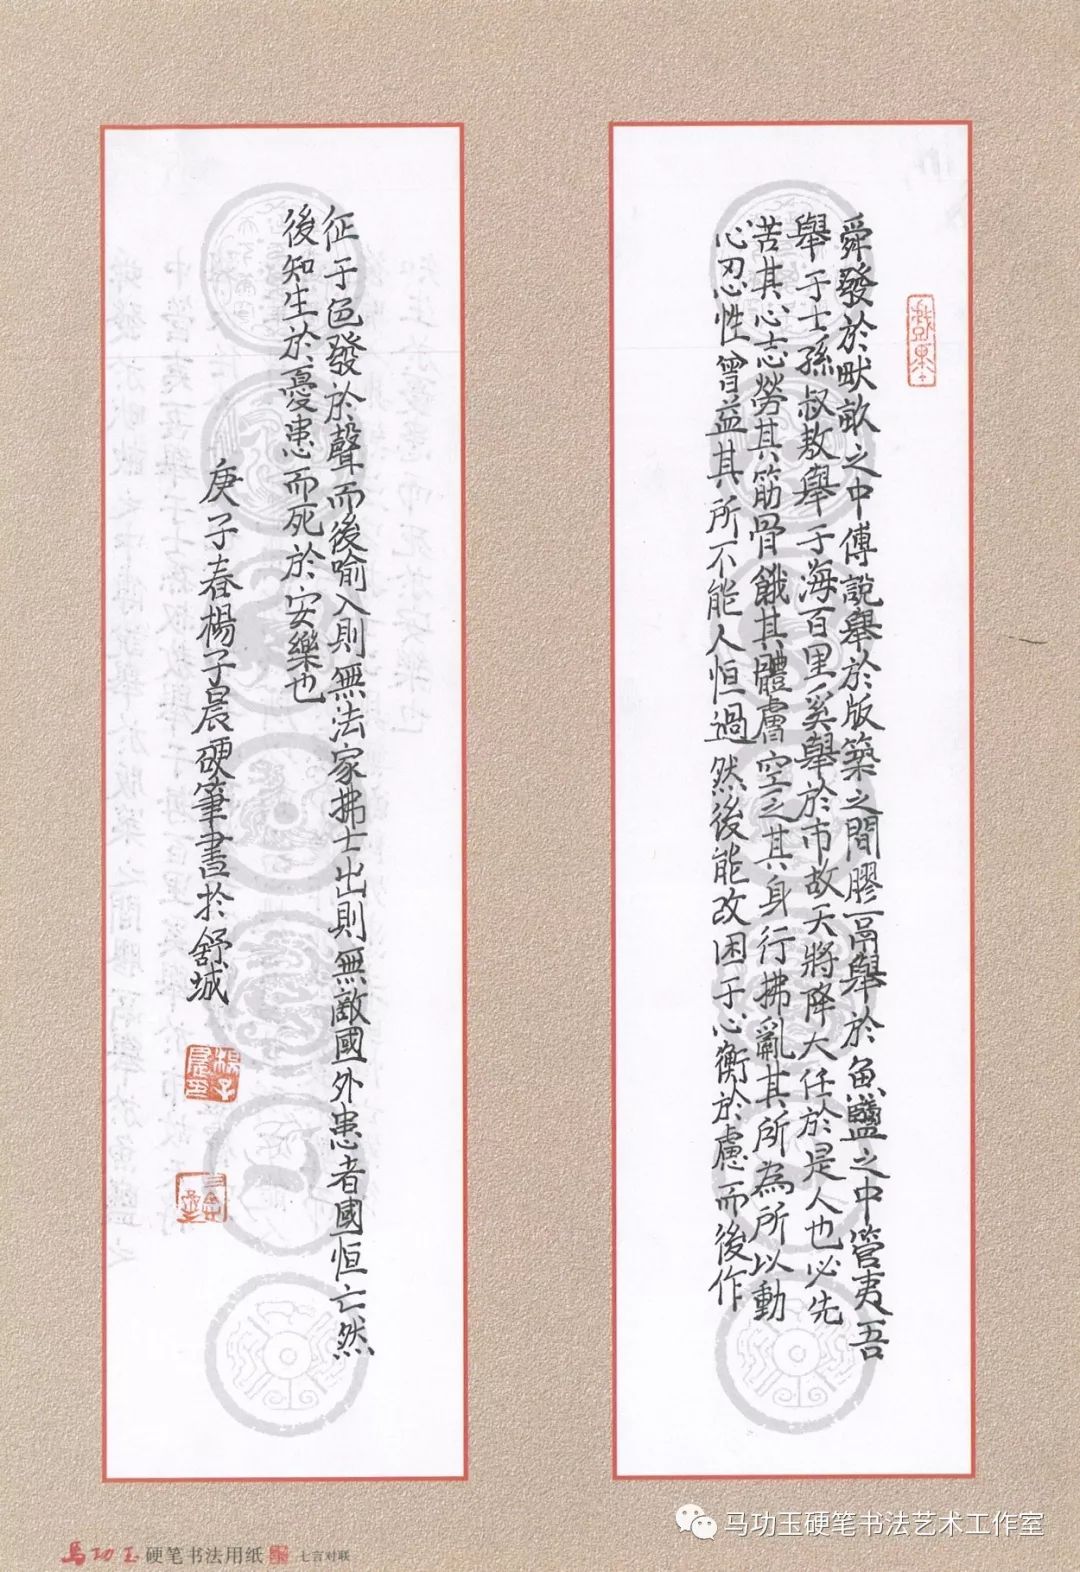 舜發於畎畝之中傅說舉於版築之間膠鬲舉於魚鹽之中管夷吾
舉于士孫叔敖舉于海百里奚舉於市故天將降大任於是人也必先
苦其心志勞其筋骨餓其體膚空乏其身行拂亂其所為所以動
心忍性曾益其所不能人恒過然後能改困于心衡於慮而後作
征于色發於聲而後喻入則無法家拂士出則無敵國外患者國恒亡然
後知生於憂患而死於安樂也
庚子春楊子晨硬筆書於舒城
楊子晨印
马功玉硬笔书法用纸 七言对联
马功玉硬笔书法艺术工作室